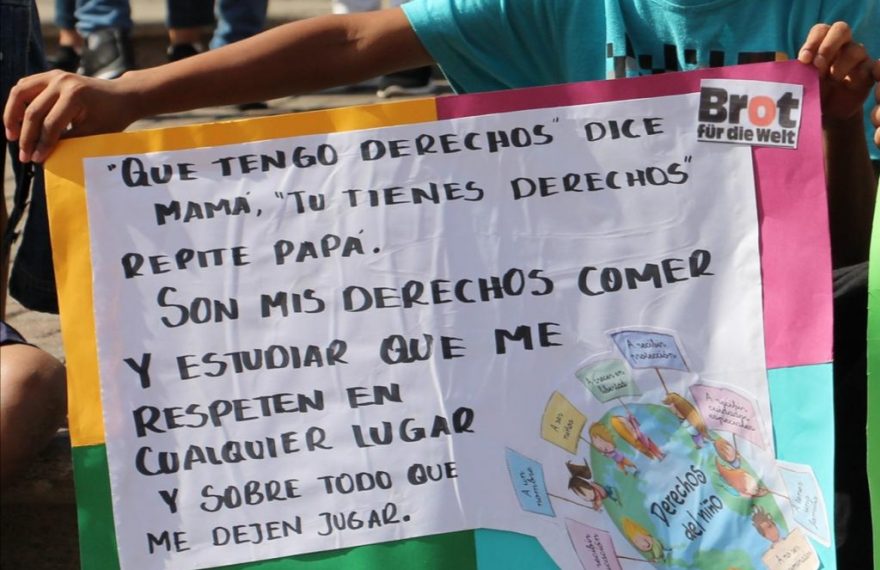 Brot
für die Welt
"QUE TENGO DERECHOS" DICE
MAMÁ, "TU TIENES DERECHOS"
REPITE PAPÁ.
SON MIS DERECHOS COMER
Y ESTUDIAR QUE ME
RESPETEN EN
CUALQUIER LUGAR
Y SOBRE TODO QUE
ME DEJEN JUGAR.
A recibir
protección
A crecer en
libertad
A ser
niños
A recibir
cuidados
especiales
A un
nombre
Derechos
del niño
A tener
una
familia